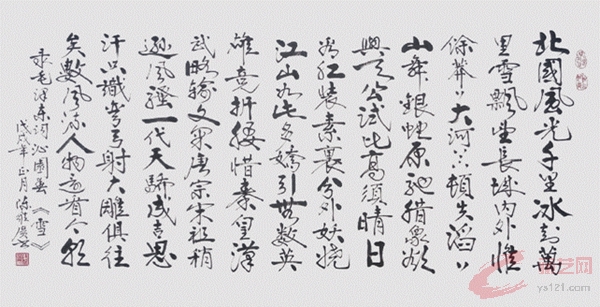 北國風光千里冰封萬
里雪飄望長城内外惟
餘莽〃大河上下頓失滔〃
山舞銀蛇原馳腊象欲
與天公試比高須晴日
看紅裝素裹分外妖嬈
江山如此多嬌引無數英
雄竟折腰惜秦皇漢
武略輸文采唐宗宋祖稍
遜風騷一代天驕成吉思
汗只識彎弓射大雕俱往
矣數風流人物還看今朝
录毛泽东词沁園春《雪》
戊戌年正月
艺网
ys121.com